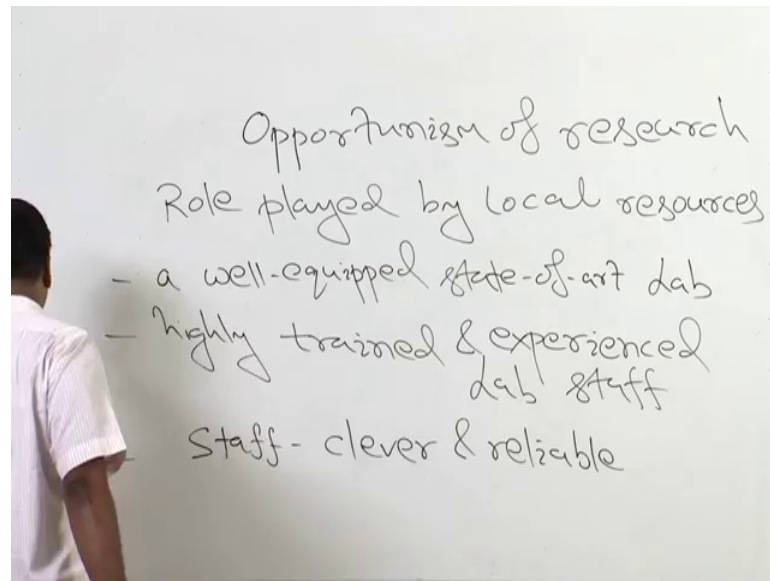 Opportunism of research
Role played by local resources
- a well-equipped state-of-art Lab
- highly trained & experienced
Lab staff
- Staff - clever & reliable